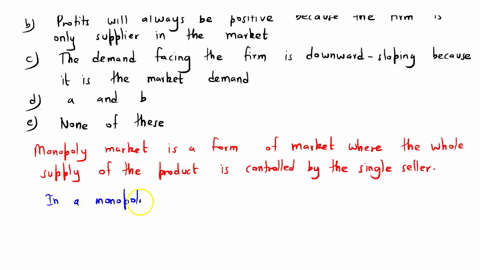 b) Profits will always be positive because the firm is
only supplier in the market
c) The demand facing the firm is downward-sloping because
it is the market demand
d) a and b
e) None of these
Monopoly market is a form of market where the whole
supply of the product is controlled by the single seller.
In a monopol